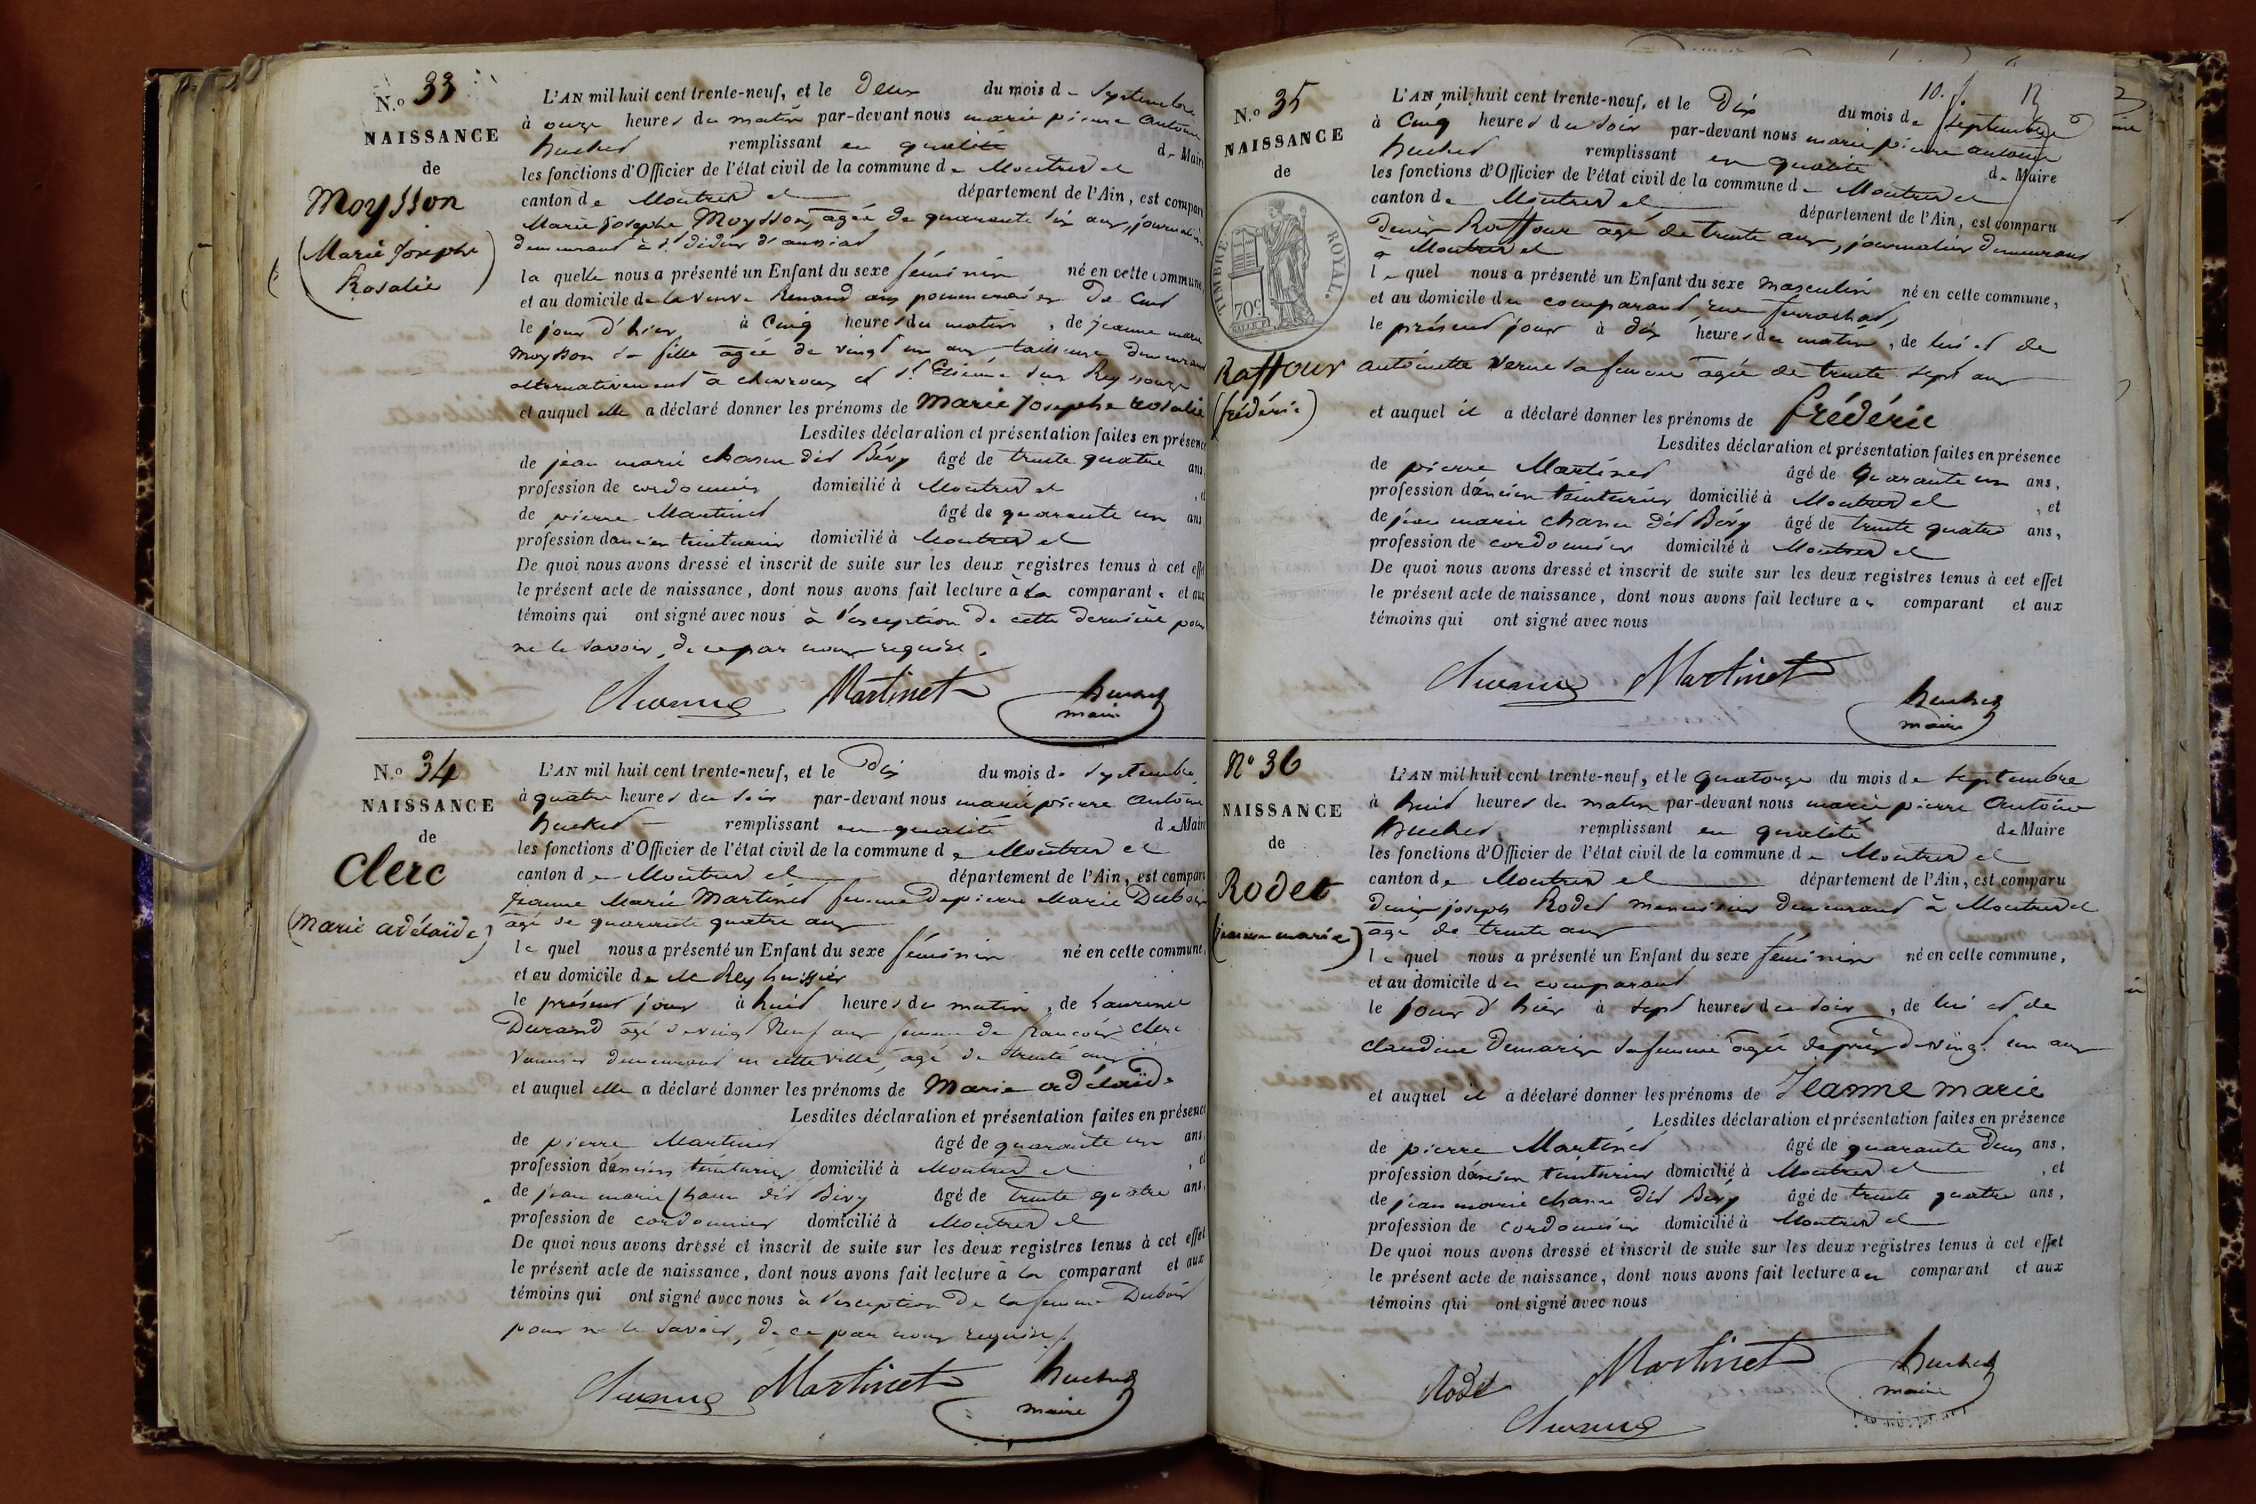 N.o 33
NAISSANCE
de
Moysson
(Marie Josephe
Rosalie)
L'AN mil huit cent trente-neuf, et le deux du mois de septembre
à onze heures du matin par-devant nous marie pierre antoine
huchet remplissant en qualité de Maire
les fonctions d'Officier de l'état civil de la commune de Montrevel
canton de Montrevel département de l'Ain, est comparu
Marie Josephe Moysson, agée de quarante six ans, journalière
demeurant à St didier d'aussiat
la quelle nous a présenté un Enfant du sexe féminin né en cette commune,
et au domicile de la veuve Renaud aux
le jour d'hier à Cinq heures du matin, de jeanne marie
moysson sa fille agée de vingt un ans tailleuse demeurant
alternativement à chevroux et St Etienne sur Reyssouze
et auquel elle a déclaré donner les prénoms de Marie Josephe rosalie
Lesdites déclaration et présentation faites en présence
de jean marie chanu dit Bévy âgé de trente quatre ans,
profession de cordonnier domicilié à Montrevel, et
de pierre Martinet âgé de quarante un ans
profession d'ancien teinturier domicilié à Montrevel
De quoi nous avons dressé et inscrit de suite sur les deux registres tenus à cet effet
le présent acte de naissance, dont nous avons fait lecture à la comparante et aux
témoins qui ont signé avec nous à l'exception de cette dernière pour
ne le savoir, de ce par nous requise.
Martinet huchet
maire
N.o 34
NAISSANCE
de
Clerc
(marie adélaïde)
L'AN mil huit cent trente-neuf, et le dix du mois de septembre
à quatre heures du soir par-devant nous marie pierre antoine
huchet remplissant en qualité de Maire
les fonctions d'Officier de l'état civil de la commune de Montrevel
canton de Montrevel département de l'Ain, est comparu
Jeanne Marie Martinet femme de pierre Marie Dubois
agé de quarante quatre ans
le quel nous a présenté un Enfant du sexe féminin né en cette commune,
et au domicile de Me Rey huissier
le présent jour à huit heures du matin, de Laurence
Durand agé de vingt neuf ans femme de françois Clerc
vannier demeurant en cette ville, agé de trente ans
et auquel elle a déclaré donner les prénoms de Marie adélaïde
Lesdites déclaration et présentation faites en présence
de pierre Martinet âgé de quarante un ans,
profession d'ancien teinturier domicilié à Montrevel, et
de jean marie chanu dit Bévy âgé de trente quatre ans,
profession de cordonnier domicilié à Montrevel
De quoi nous avons dressé et inscrit de suite sur les deux registres tenus à cet effet
le présent acte de naissance, dont nous avons fait lecture à la comparant et aux
témoins qui ont signé avec nous à l'exception de la femme Dubois
pour ne le savoir, de ce par nous requise.
Martinet huchet
maire
10.
N.o 35
NAISSANCE
de
TIMBRE ROYAL.
70c
Raffour
(frédéric)
L'AN mil huit cent trente-neuf, et le Dix du mois de septembre
à Cinq heures du soir par-devant nous marie pierre antoine
huchet remplissant en qualité de Maire
les fonctions d'Officier de l'état civil de la commune de Montrevel
canton de Montrevel département de l'Ain, est comparu
denis Raffour agé de trente ans, journalier demeurant
à Montrevel
le quel nous a présenté un Enfant du sexe masculin né en cette commune,
et au domicile du comparant rue
le présent jour à dix heures du matin, de lui et de
antoinette verne sa femme agée de trente sept ans
et auquel il a déclaré donner les prénoms de frédéric
Lesdites déclaration et présentation faites en présence
de pierre Martinet âgé de quarante un ans,
profession d'ancien teinturier domicilié à Montrevel, et
de jean marie chanu dit Bévy âgé de trente quatre ans,
profession de cordonnier domicilié à Montrevel
De quoi nous avons dressé et inscrit de suite sur les deux registres tenus à cet effet
le présent acte de naissance, dont nous avons fait lecture au comparant et aux
témoins qui ont signé avec nous
Martinet huchet
maire
No 36
NAISSANCE
de
Rodet
(jeanne marie)
L'AN mil huit cent trente-neuf, et le quatorze du mois de septembre
à huit heures du matin par-devant nous marie pierre antoine
huchet remplissant en qualité de Maire
les fonctions d'Officier de l'état civil de la commune de Montrevel
canton de Montrevel département de l'Ain, est comparu
denis joseph Rodet menuisier demeurant à Montrevel
agé de trente ans
le quel nous a présenté un Enfant du sexe féminin né en cette commune,
et au domicile du comparant
le jour d'hier à sept heures du soir, de lui et de
claudine Demarin sa femme agée de près de vingt un ans
et auquel il a déclaré donner les prénoms de Jeanne marie
Lesdites déclaration et présentation faites en présence
de pierre Martinet âgé de quarante deux ans,
profession d'ancien teinturier domicilié à Montrevel, et
de jean marie chanu dit Bévy âgé de trente quatre ans,
profession de cordonnier domicilié à Montrevel
De quoi nous avons dressé et inscrit de suite sur les deux registres tenus à cet effet
le présent acte de naissance, dont nous avons fait lecture au comparant et aux
témoins qui ont signé avec nous
Rodet Martinet huchet
maire